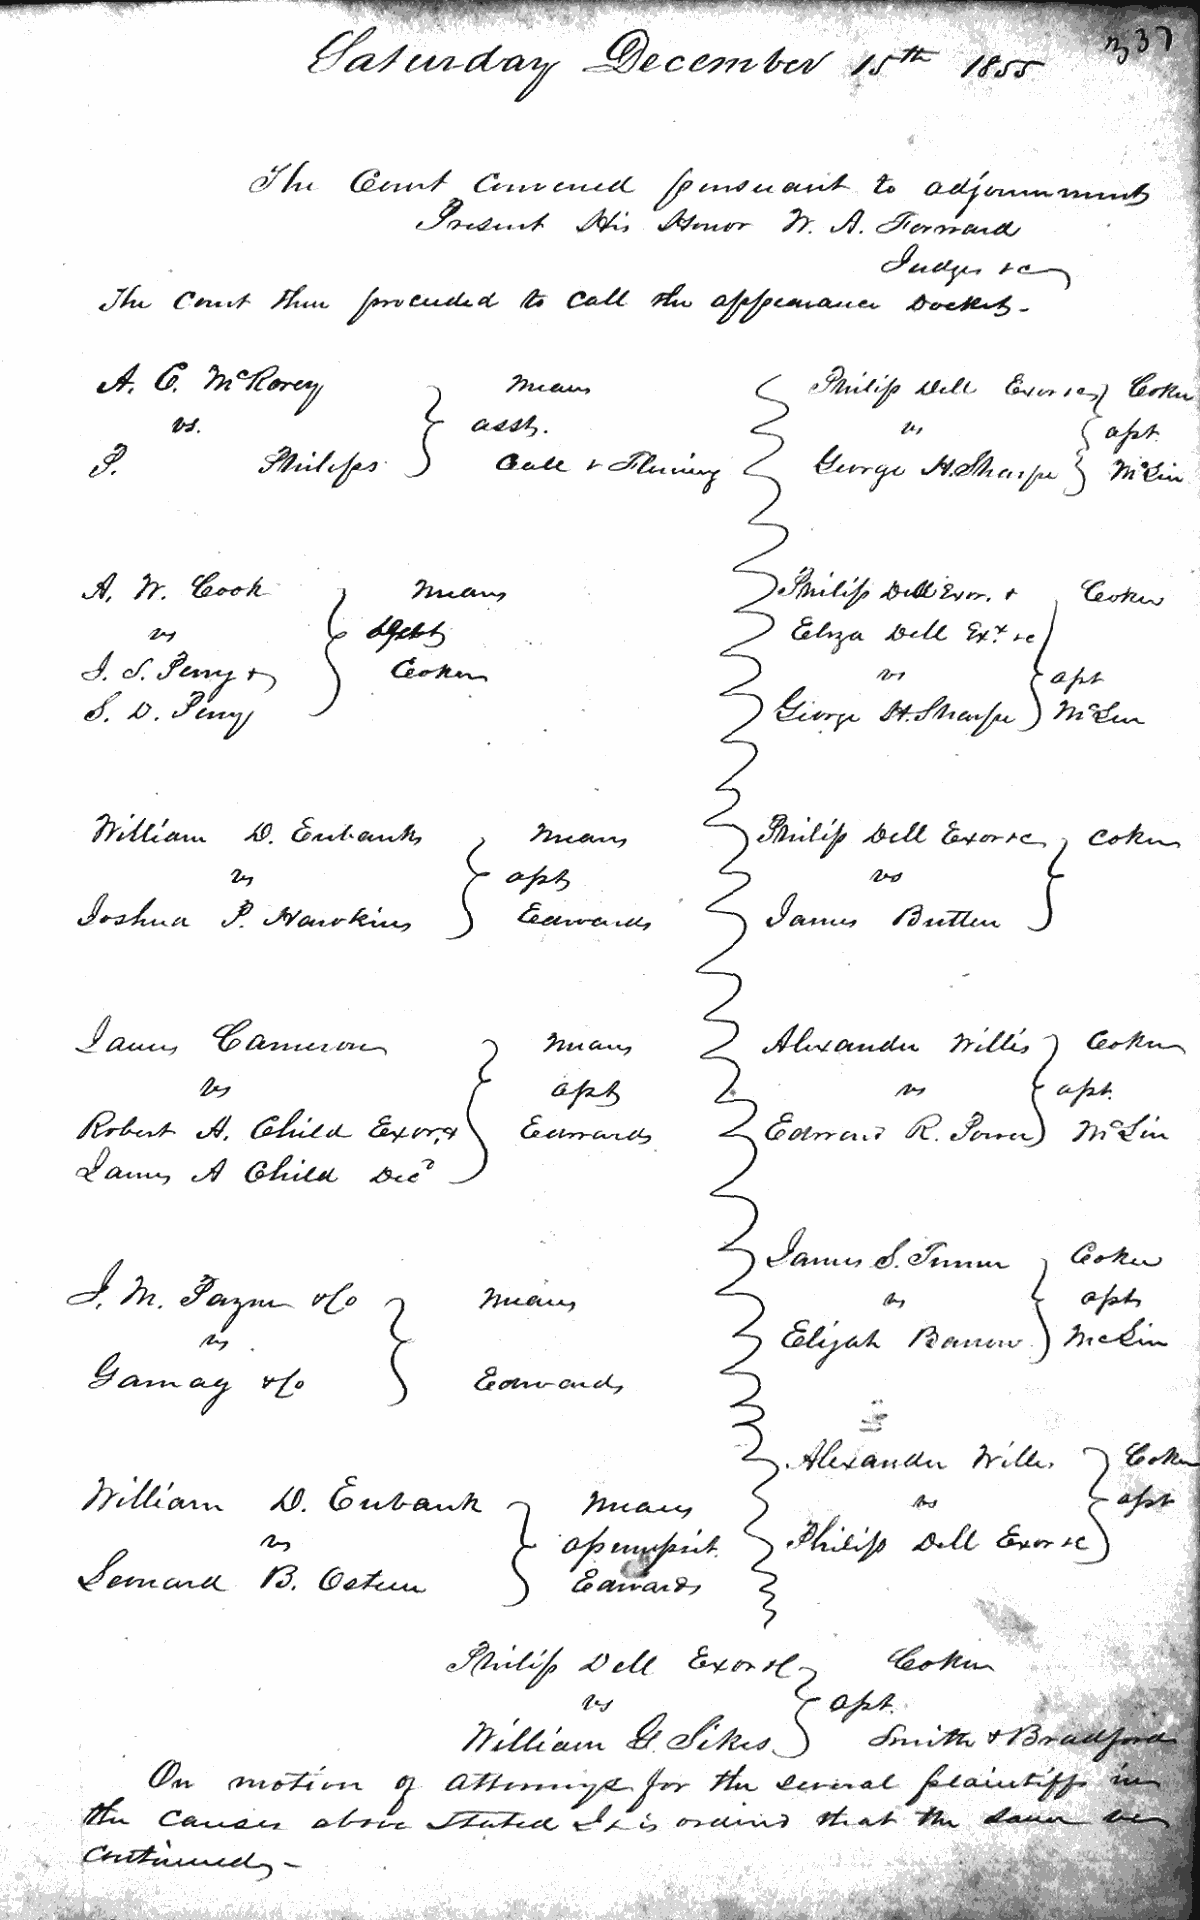 337
Saturday December 15th 1855
The Court convened pursuant to adjournment
Present His Honor W. A. Forward
Judge &c
The Court then proceeded to call the appearance Docket.
A. C. McRorey Means
vs. asst.
P. Philips Call & Fleming
A. W. Cook Means
vs Debt
J. S. Perry & Coker
S. D. Perry
William D. Eubanks Means
vs apt
Joshua P. Hawkins Edwards
James Cameron Means
vs apt
Robert A. Child Exor. &
Edwards
James A Child Decd
J. M. Payne & Co Means
vs
Gamag & Co Edwards
William D. Eubank Means
vs
Leonard B. Osteen Edwards
Philip Dell Exor &c Coker
vs apt.
George H. Sharpe McLin
Philip Dell Exor. & Coker
Eliza Dell Exx &c
vs apt
George H. Sharpe McLin
Philip Dell Exor &c Coker
vs
James Britten
Alexander Willis Coker
vs apt.
Edward R. Power McLin
James S. Turner Coker
vs apt
Elijah Barrow McLin
Alexander Willis Coker
vs apt
Philip Dell Exor &c
Philip Dell Exor &c Coker
vs apt.
William G. Sikes Smith & Bradford
On motion of Attorneys for the several plaintiffs in
the causes above stated It is ordered that the same be
continued,-